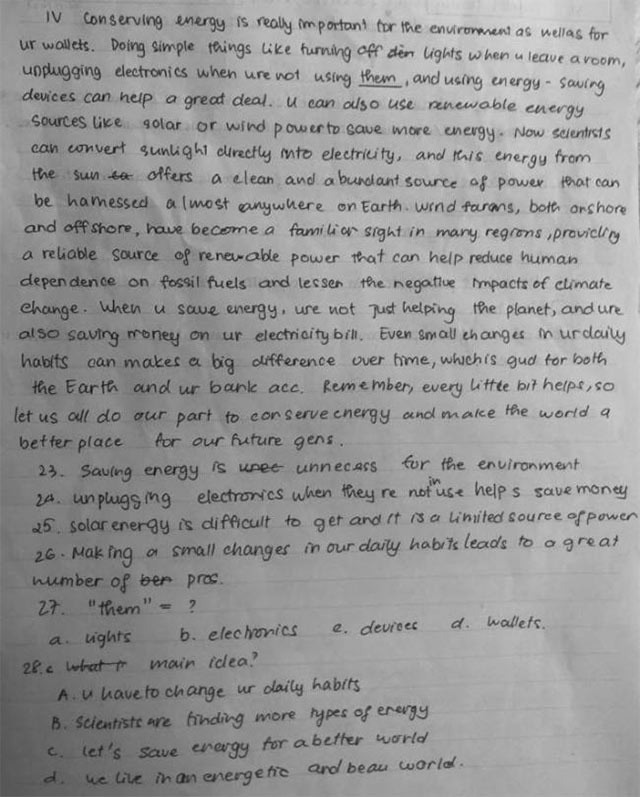 IV Conserving energy is really important for the environment as wellas for
ur wallets. Doing simple things like turning off den lights when u leave a room,
unplugging electronics when ure not using them, and using energy - saving
devices can help a great deal. u can also use renewable energy
sources like solar or wind power to save more energy. Now scientists
can convert sunlight directly into electricity, and this energy from
the sun offers a clean and abundant source of power that can
be harnessed almost anywhere on Earth. Wind farms, both onshore
and offshore, have become a familiar sight in many regions, providing
a reliable source of renewable power that can help reduce human
dependence on fossil fuels and lessen the negative impacts of climate
change. When u save energy, ure not just helping the planet, and ure
also saving money on ur electricity bill. Even small changes in ur daily
habits can makes a big difference over time, which is gud for both
the Earth and ur bank acc. Remember, every little bit helps, so
let us all do our part to conserve energy and make the world a
better place for our future gens.
23. Saving energy is unnecess for the environment
24. unplugging electronics when they re not in use helps save money
25. solar energy is difficult to get and it is a limited source of power
26. Making a small changes in our daily habits leads to a great
number of ben pros.
27. "them" = ?
a. lights b. electronics c. devices d. wallets.
28. what main idea?
A. u have to change ur daily habits
B. Scientists are finding more types of energy
C. let's save energy for a better world
d. we live in an energetic and beau world.